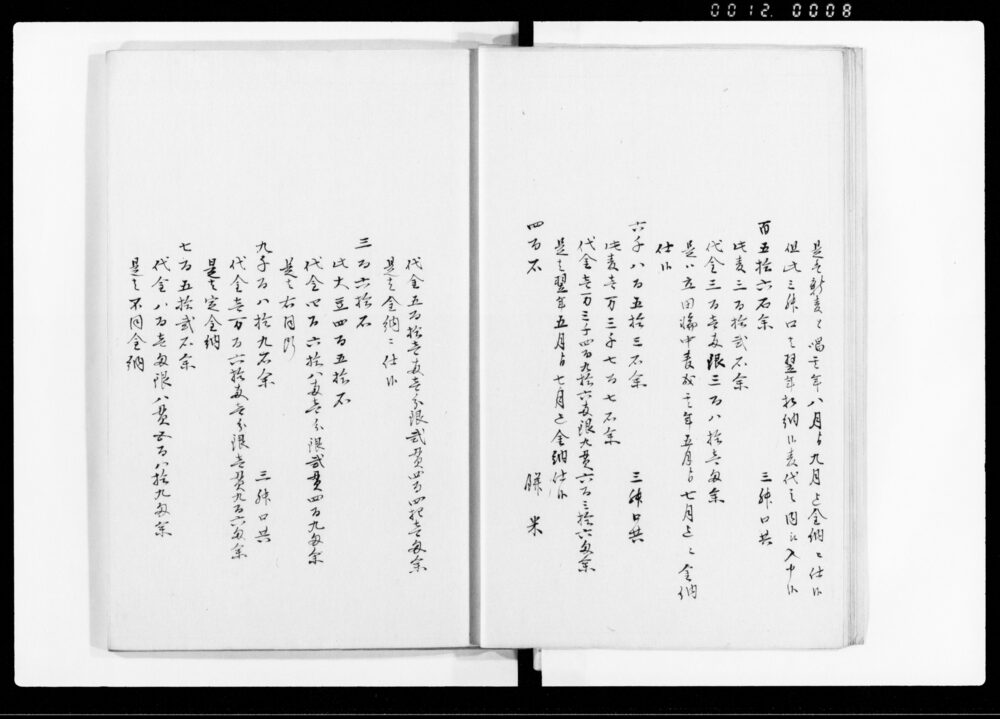 0012. 0008
是ハ新麦と唱其年八月ゟ九月迄金納ニ仕候
但此三株口之翌年折納候麦代之内江入申候
百五拾六石余 三株口共
此麦三百拾弐石余
代金三百壱両銀三百八拾壱匁余
是ハ中麦成其年五月ゟ七月迄ニ金納
仕候
六千八百五拾三石余 三株口共
此麦壱万三千七百七石余
代金壱万三千四百九拾六両銀九貫六百三拾六匁余
是ハ翌年五月ゟ七月迄金納仕候
四百石 膳米
代金五百拾壱両壱分銀弐貫四百四拾壱匁余
是ハ金納ニ仕候
三百六拾石
此大豆四百五拾石
代金四百六拾八両壱分銀弐貫四百九匁余
是ハ右同断
九千百八拾九石余 三株口共
代金壱万百六拾両壱分銀壱貫九百六匁余
是ハ定金納
七百五拾弐石余
代金八百壱両銀八貫五百八拾九匁余
是ハ不同金納